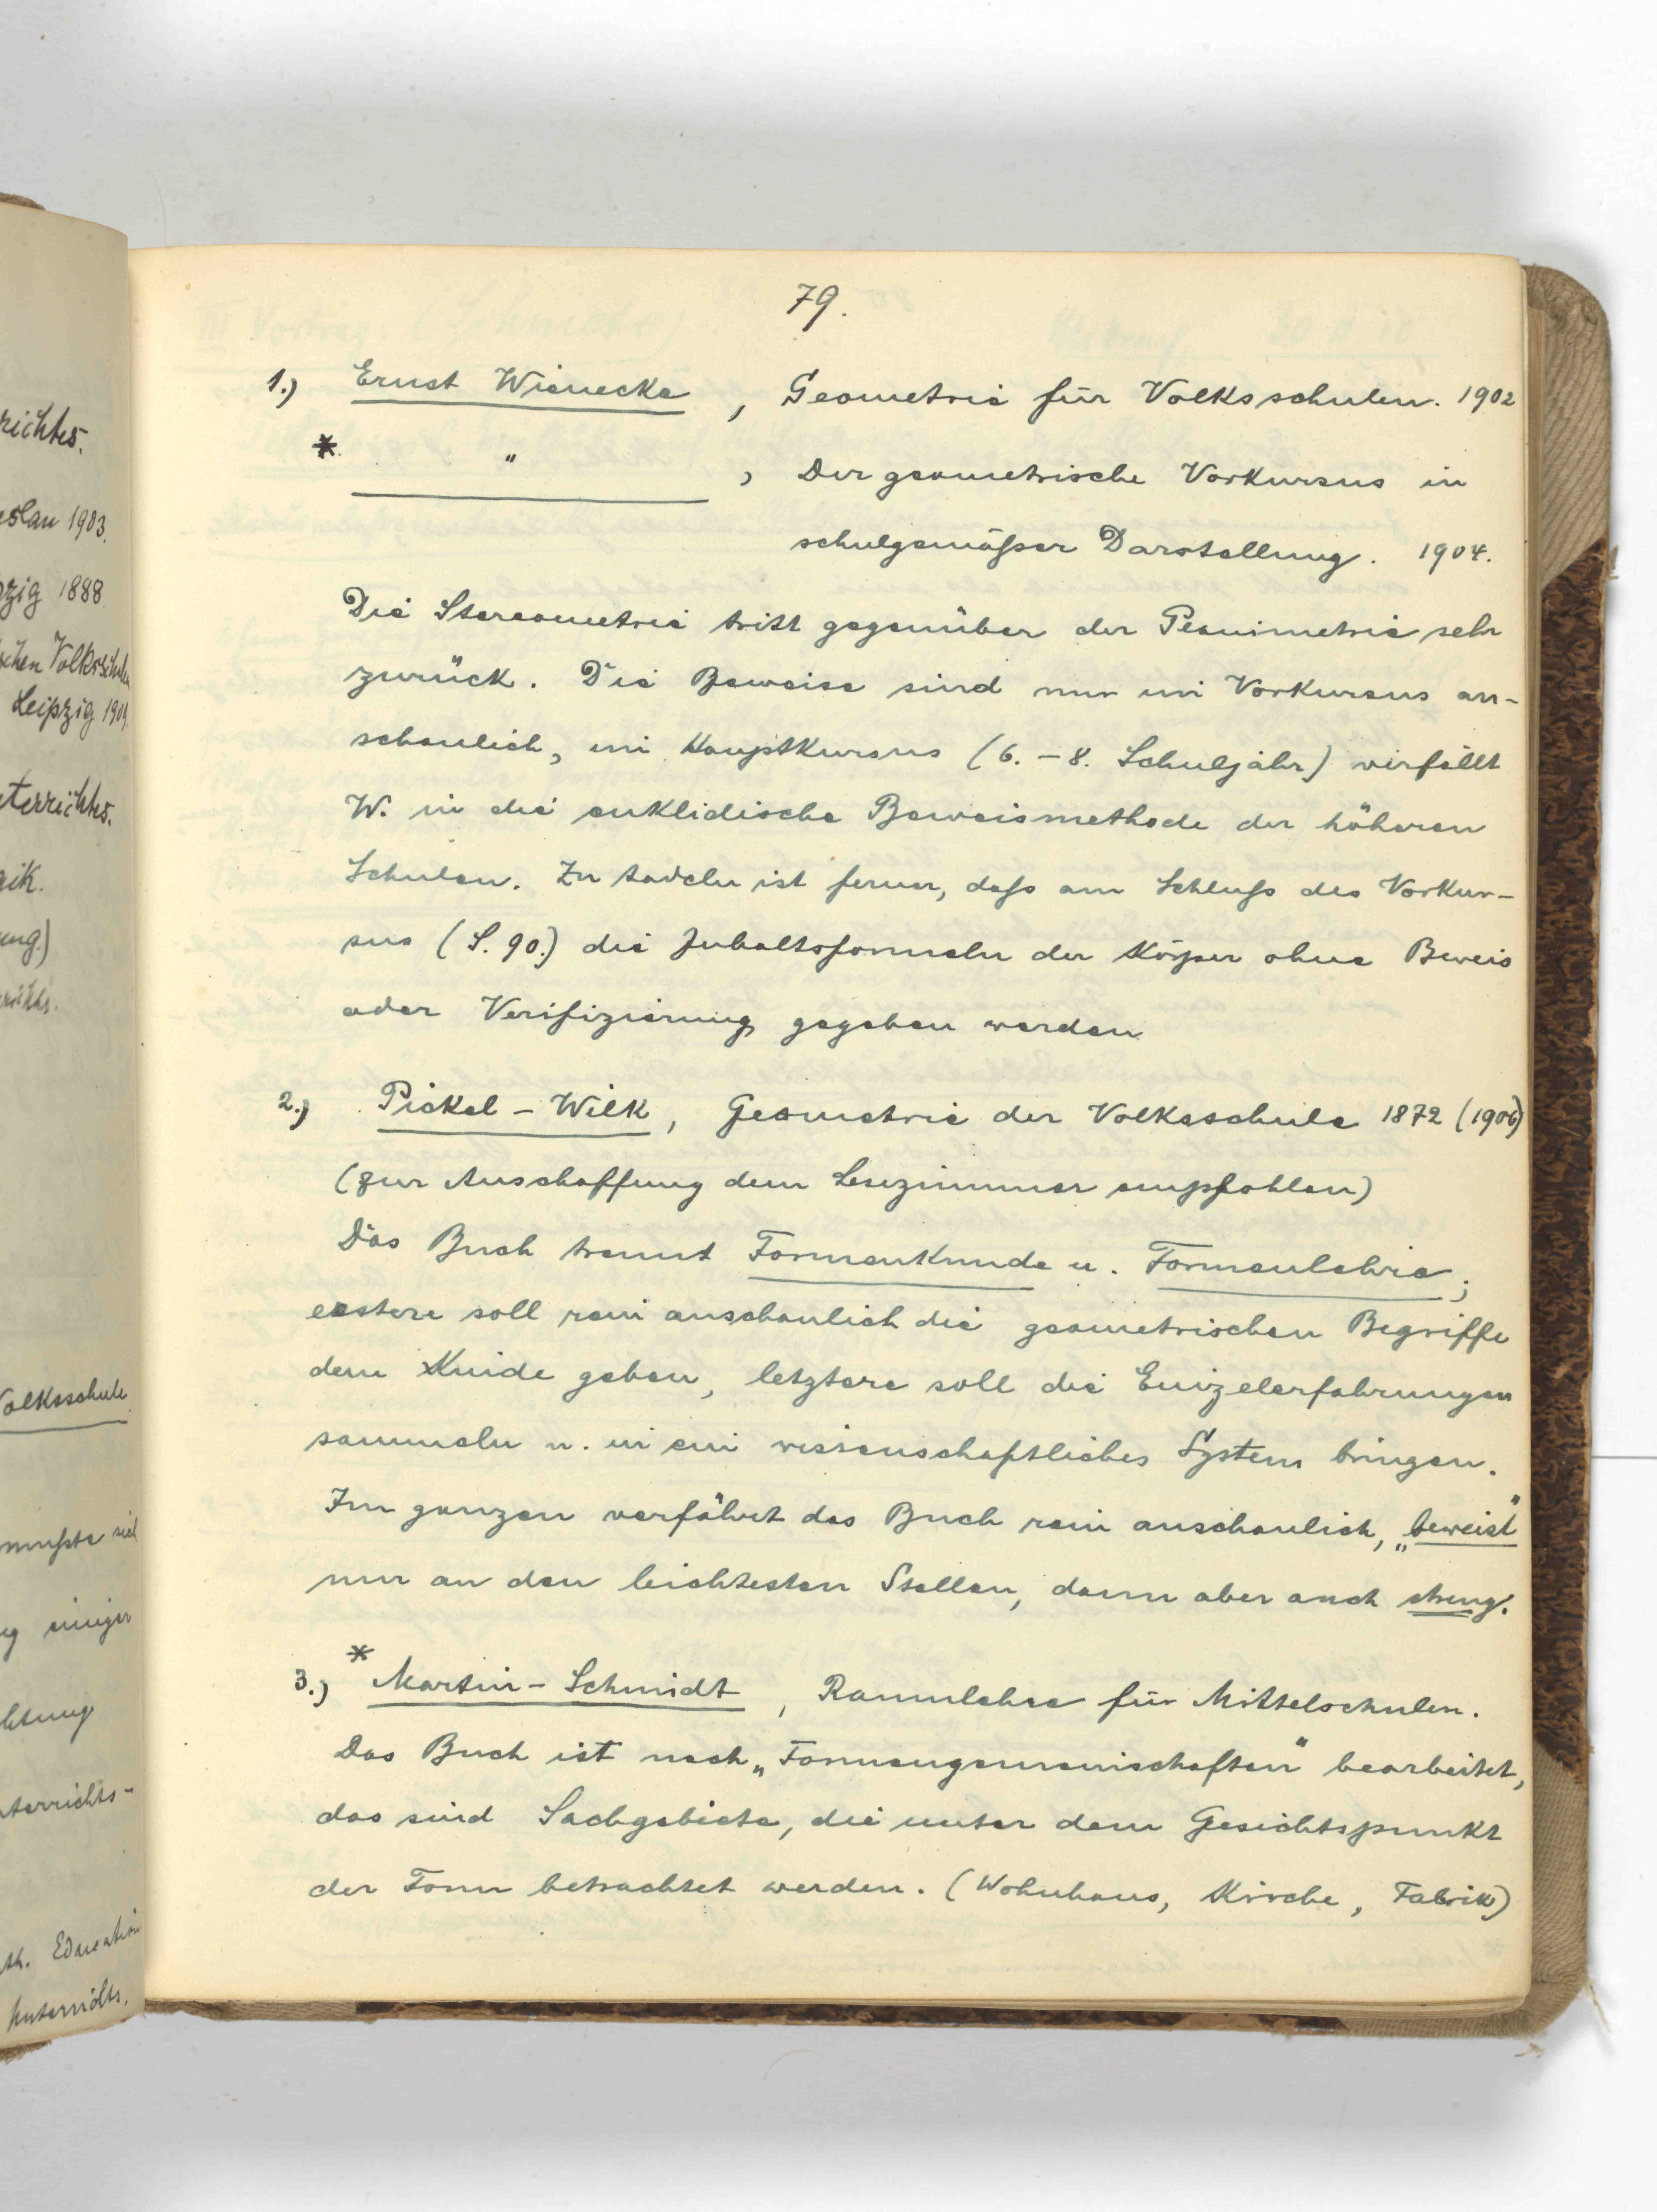 richtes.
eslau 1903.
pzig 1888
schen Volksschulen
Leipzig 1909.
terrichtes.
gik.
ung.)
richts.
Volksschule
musste sich
ng einiger
chtung
terrichts-
th. Education
Unterrichts.
79.
1.) Ernst Wienecke, Geometrie für Volksschulen. 1902
* ", Der geometrische Vorkursus in
schulgemäßer Darstellung. 1904.
Die Stereometrie tritt gegenüber der Planimetrie sehr
zurück. Die Beweise sind nur im Vorkursus an-
schaulich, im Hauptkursus (6.-8. Schuljahr) verfällt
W. in die euklidische Beweismethode der höheren
Schulen. Zu tadeln ist ferner, daß am Schluß des Vorkur-
sus (S. 90.) die Inhaltsformeln der Körper ohne Beweis
oder Verifizierung gegeben werden
2.) Pickel-Wilk, Geometrie der Volksschule 1872 (1906)
(zur Anschaffung dem Lesezimmer empfohlen)
Das Buch trennt Formenkunde u. Formenlehre;
erstere soll rein anschaulich die geometrischen Begriffe
dem Kinde geben, letztere soll die Einzelerfahrungen
sammeln u. in ein wissenschaftliches System bringen.
Im ganzen verfährt das Buch rein anschaulich, „beweist"
nur an den leichtesten Stellen, dann aber auch streng.
3.) * Martin-Schmidt, Raumlehre für Mittelschulen.
Das Buch ist nach „Formengemeinschaften" bearbeitet,
das sind Sachgebiete, die unter dem Gesichtspunkt
der Form betrachtet werden. (Wohnhaus, Kirche, Fabrik)